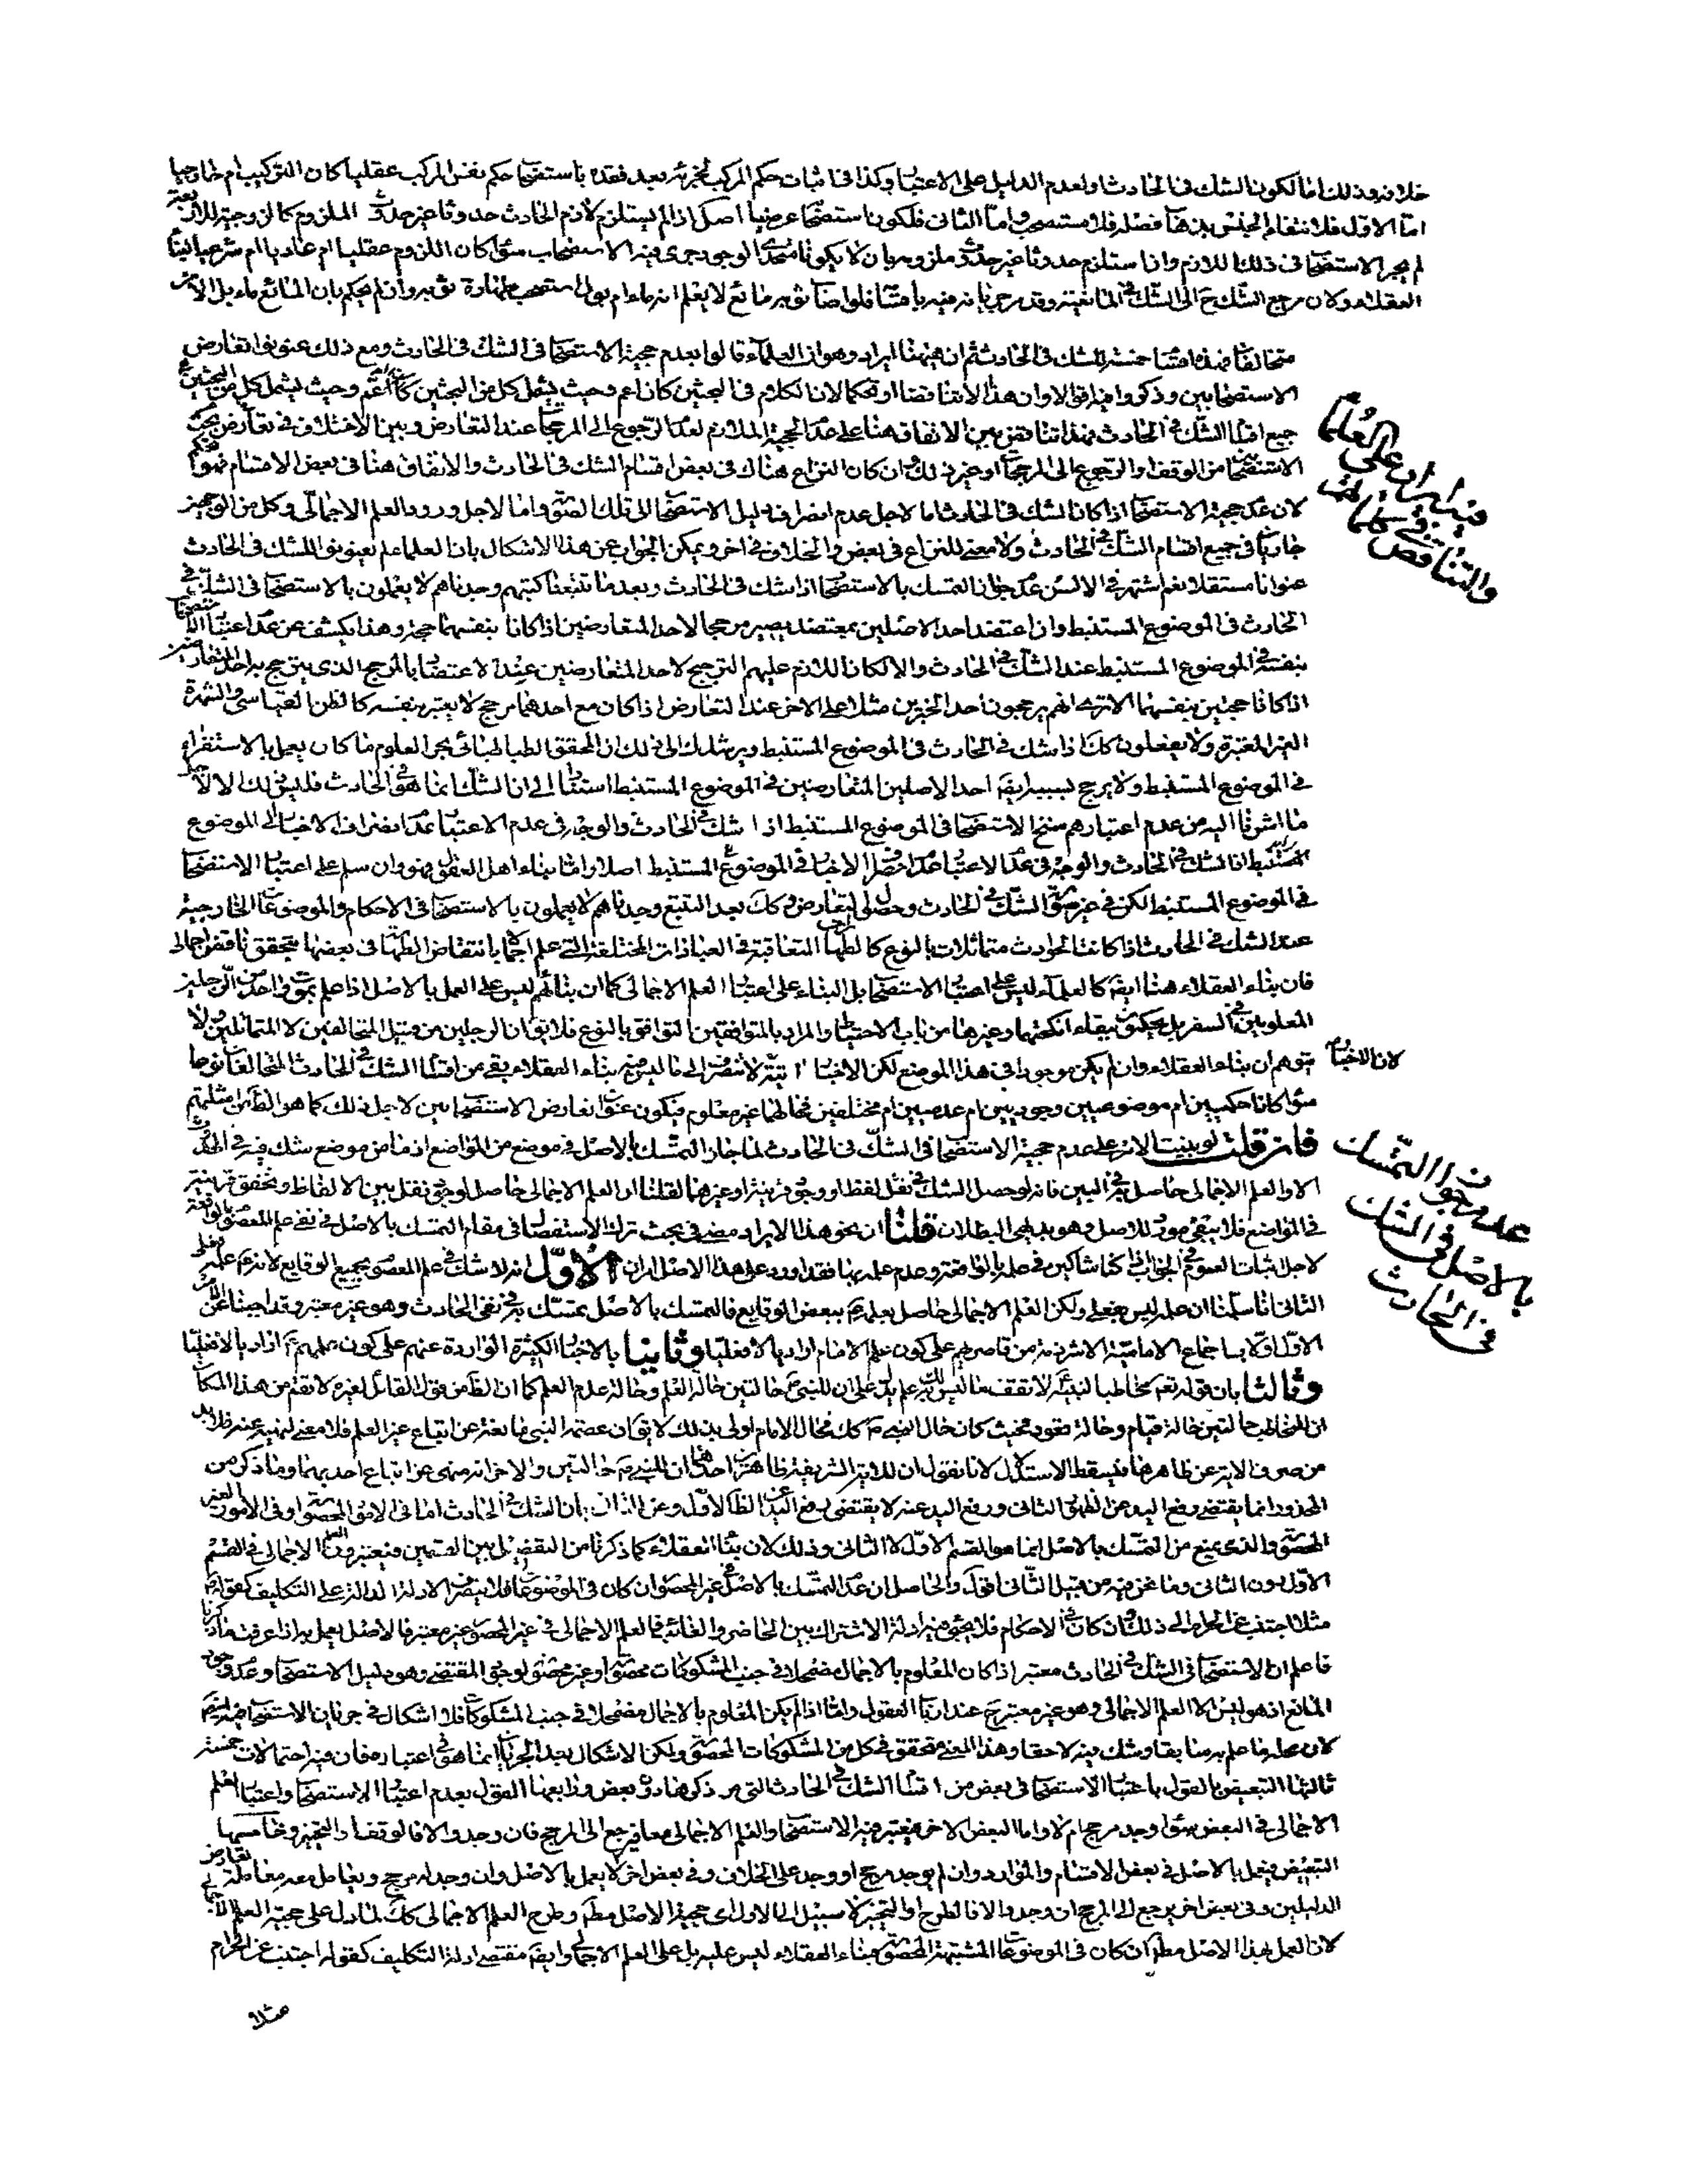 خلافه وذلك اما لكون الشك فى الحادث او لعدم الدليل على الاعتبار وكذا فى اثبات حكم المركب لجزئه بعد فقده باستصحاب حكم نفس المركب عقليا كان التركيب ام خارجيا
اما الاول فلانتفاء الجنس بذهاب فصله فلا مستصحب واما الثانى فلكون استصحابا عرضيا اصلا اذا لم يستلزم لازم الحادث حدوثا غير حدوث الملزوم كالزوجية للاربعة
لم يجر الاستصحاب فى ذلك اللازم واذا استلزم حدوثا غير حدوث ملزومه بان لا يكونا متحدى الوجود جرى فيه الاستصحاب سواء كان اللزوم عقليا ام عاديا ام شرعيا
العقلاء ولان مرجع الشك ح الى الشك فى المانعية وقد مر جريانه فيه باقسامه فلو اصاب ثوبه مائع لا يعلم انه ماء ام بول استصحب طهارة ثوبه وان لم يحكم بان المائع ماء بل الامر
متخالفان فهذه اقسام خمسة للشك فى الحادث ثم ان ههنا ايراد وهو ان العلماء قالوا بعدم حجية الاستصحاب فى الشك فى الحادث ومع ذلك عنونوا تعارض
الاستصحابين وذكروا فيه اقوالا وان هذا الا تناقضا او تحكما لان الكلام فى البحثين كان اعم وحيث يشمل كل من البحثين
جميع اقسام الشك فى الحادث فهذا تناقض بين الاتفاق هنا على عدم الحجية الملازم لعدم الرجوع الى المرجحات عند التعارض وبين الاختلاف فى تعارض
الاستصحابين من الوقف او الرجوع الى المرجحات او غير ذلك وان كان النزاع هناك فى بعض اقسام الشك فى الحادث والاتفاق هنا فى بعض الاقسام فهو تحكم
لان عدم حجية الاستصحاب اذا كان الشك فى الحادث اما لاجل عدم انصراف دليل الاستصحاب الى تلك الصورة واما لاجل ورود العلم الاجمالى وكل من الوجهين
جاريان فى جميع اقسام الشك فى الحادث ولا معنى للنزاع فى بعض والخلاف فى اخر ويمكن الجواب عن هذا الاشكال بان العلماء لم يعنونوا للشك فى الحادث
عنوانا مستقلا نعم اشتهر فى الالسن عدم جواز التمسك بالاستصحاب اذا شك فى الحادث وبعد ما تتبعنا كتبهم وجدناهم لا يعملون بالاستصحاب فى الشك فى
الحادث فى الموضوع المستنبط وان اعتضد احد الاصلين بمعتضد يصير مرجحا لاحد المتعارضين اذا كانا بنفسهما حجة وهذا يكشف عن عدم اعتبار الاستصحاب
بنفسه فى الموضوع المستنبط عند الشك فى الحادث والا لكان اللازم عليهم الترجيح لاحد المتعارضين عند الاعتضاد بالمرجح الذى يترجح به احد المتعارضين
اذا كانا حجتين بنفسهما الا ترى انهم يرجحون احد الخبرين مثلا على الاخر عند التعارض اذا كان مع احدهما مرجح لا يعتبر بنفسه كالظن القياسى والشهرة
الغير المعتبرة ولا يفعلون كك اذا شك فى الحادث فى الموضوع المستنبط ويرشدك الى ذلك ان المحقق الطباطبائى بحر العلوم ما كان يعمل بالاستقراء
فى الموضوع المستنبط ولا يرجح بسببه ايضا احد الاصلين المتعارضين فى الموضوع المستنبط استنادا الى ان الشك انما هو فى الحادث فليس ذلك الا لاجل
ما اشرنا اليه من عدم اعتبارهم سنخ الاستصحاب فى الموضوع المستنبط اذا شك فى الحادث والوجه فى عدم الاعتبار عدم انصراف الاخبار الى الموضوع
المستنبط اذا شك فى الحادث والوجه فى عدم الاعتبار عدم انصراف الاخبار فى الموضوع المستنبط اصلا واما بناء اهل العقول فهو وان سلم على اعتبار الاستصحاب
فى الموضوع المستنبط لكن فى غير صورة الشك فى الحادث وحصول التعارض وكك بعد التتبع وجدناهم لا يعملون بالاستصحاب فى الاحكام والموضوعات الخارجية
عند الشك فى الحادث اذا كانت الحوادث متماثلات بالنوع كالطهارات المتعاقبة فى العبادات المختلفة التى علم اجمالا بانتقاض الطهارة فى بعضها بتحقق ناقض اجمالى
فان بناء العقلاء هنا ايضا كالعلماء ليس على اعتبار الاستصحاب بل البناء على اعتبار العلم الاجمالى كما ان بنائهم ليس على العمل بالاصل اذا علم بموت واحد من الرجلين
المعلومين فى السفر بل يحكمون ببقاء انكحتهما وغيرها من باب الاحتياط والمراد بالمتوافقين التوافق بالنوع فلا يق ان الرجلين من قبيل المتخالفين لا المتماثلين ولا
لان الاخبار
يتوهم ان بناء العقلاء وان لم يكن موجودا فى هذا الموضع لكن الاخبار آتية لا تنصرف الى ما ليس فيه بناء العقلاء بقى من اقسام الشك فى الحادث المتخالفان نوعا
سواء كانا حكميين ام موضوعيين وجوديين ام عدميين ام مختلفين فحالهما غير معلوم فيكون عنوان تعارض الاستصحابين لاجل ذلك كما هو الظاهر من امثلتهم
فان قلت لو بنيت الامر على عدم حجية الاستصحاب فى الشك فى الحادث لما جاز التمسك بالاصل فى موضع من المواضع اذ ما من موضع شك فيه فى الحدوث
الا والعلم الاجمالى حاصل فى البين فانه لو حصل الشك فى نقل لفظ او وجود قرينة او غيرهما لقلنا ان العلم الاجمالى حاصل بوجود نقل بين الالفاظ وتحقق قرينة
فى المواضع فلا يبقى مورد للاصل وهو بديهى البطلان قلنا ان نحو هذا الايراد مضى فى بحث ترك الاستفصال فى مقام التمسك بالاصل فى نفى علم المعصوم بالواقعة
لاجل اثبات العموم فى الجواب اذا كنا شاكين فى علمه بالواقعة وعدم علمه بها فقد اورد على هذا الاصل ايرادان الاول انه لا شك فى علم المعصوم بجميع الوقايع لانه علمه فعلى
الثانى انا سلمنا ان علمه ليس بفعلى ولكن العلم الاجمالى حاصل بعلمه ع ببعض الوقايع فالتمسك بالاصل تمسك به فى نفى الحادث وهو غير معتبر وقد اجبنا عن
الاول اولا باجماع الامامية الا شرذمة من قاصريهم على كون علم الامام اراديا لا فعليا وثانيا بالاخبار الكثيرة الواردة عنهم على كون علمهم ع اراديا لا فعليا
وثالثا بان قوله تعالى مخاطبا لنبيه لا تقف ما ليس لك به علم يدل على ان للنبى ص حالتين حالة العلم وحالة عدم العلم كما ان الظاهر من قول القائل لغيره لا تقم من هذا المكان
ان للمخاطب حالتين حالة قيام وحالة قعود فحيث كان حال النبى ص كك فحال الامام اولى بذلك لا يق ان عصمة النبى مانعة عن اتباع غير العلم فلا معنى لنهيه عنه فلا بد
من صرف الاية عن ظاهرها فيسقط الاستدلال لانا نقول ان للاية الشريفة ظاهرين احدهما ان للنبى ص حالتين والاخر انه منهى عن اتباع احديهما وما ذكر من
المحذور انما يقتضى رفع اليد عن الظهور الثانى ورفع اليد عنه لا يقتضى رفع اليد عن الظاهر الاول وعن الثانى بان الشك فى الحادث اما فى الامور المحصورة او فى الامور الغير
المحصورة والذى يمنع من التمسك بالاصل انما هو القسم الاول لا الثانى وذلك لان بناء العقلاء كما ذكرنا من التفصيل بين القسمين فيعتبرون العلم الاجمالى فى القسم
الاول دون الثانى وما نحن فيه من قبيل الثانى اقول والحاصل ان عدم التمسك بالاصل فى غير المحصور ان كان فى الموضوعات فلا ينصرف الادلة الدالة على التكليف كقوله
مثلا اجتنب عن الحرام الى ذلك وان كان فى الاحكام فلا يجئ فيه ادلة الاشتراك بين الحاضر والغائب فالعلم الاجمالى فى غير المحصور غير معتبر فالاصل يعمل به اذا عرفت ما ذكرنا
فاعلم ان الاستصحاب فى الشك فى الحادث معتبر اذا كان المعلوم بالاجمال مضمحلا فى جنب المشكوكات محصورة او غير محصورة لوجود المقتضى وهو دليل الاستصحاب وعدم وجود
المانع اذ هو ليس الا العلم الاجمالى وهو غير معتبر ح عند ارباب العقول واما اذا لم يكن المعلوم بالاجمال مضمحلا فى جنب المشكوكات فلا اشكال فى جريان الاستصحاب فيه ايضا
لان مجراه ما علم به سابقا وشك فيه لاحقا وهذا المعنى متحقق فى كل من المشكوكات المحصورة ولكن الاشكال بعد الجريان انما هو فى اعتباره فان فيه احتمالات خمسة
ثالثها التبعيض بالقول باعتبار الاستصحاب فى بعض من اقسام الشك فى الحادث التى مر ذكرها دون بعض ورابعها القول بعدم اعتبار الاستصحاب واعتبار العلم
الاجمالى فى البعض سواء وجد مرجح ام لا واما البعض الاخر فيعتبر فيه الاستصحاب والعلم الاجمالى معا فيرجع الى المرجح فان وجد والا فالوقف او التخيير وخامسها
التبعيض فيعمل بالاصل فى بعض الاقسام والموارد وان لم يوجد مرجح او وجد على الخلاف وفى بعض اخر لا يعمل بالاصل وان وجد له مرجح ويعامل معه معاملة تعارض
الدليلين وفى بعض اخر يرجع الى المرجح ان وجد والا فالطرح او التخيير لا سبيل الى الاول اى حجية الاصل مطلقا وطرح العلم الاجمالى كك لما دل على حجية العلم الاجمالى
لان العمل بهذا الاصل مطلقا ان كان فى الموضوعات المشتبهة المحصورة فبناء العقلاء ليس عليه بل على العلم الاجمالى وايضا مقتضى ادلة التكليف كقوله اجتنب عن الحرام
مثلا
فيه ايراد على العلماء
والتناقض فى كلماتهم
عدم جواز التمسك
بالاصل فى الشك
فى الحادث